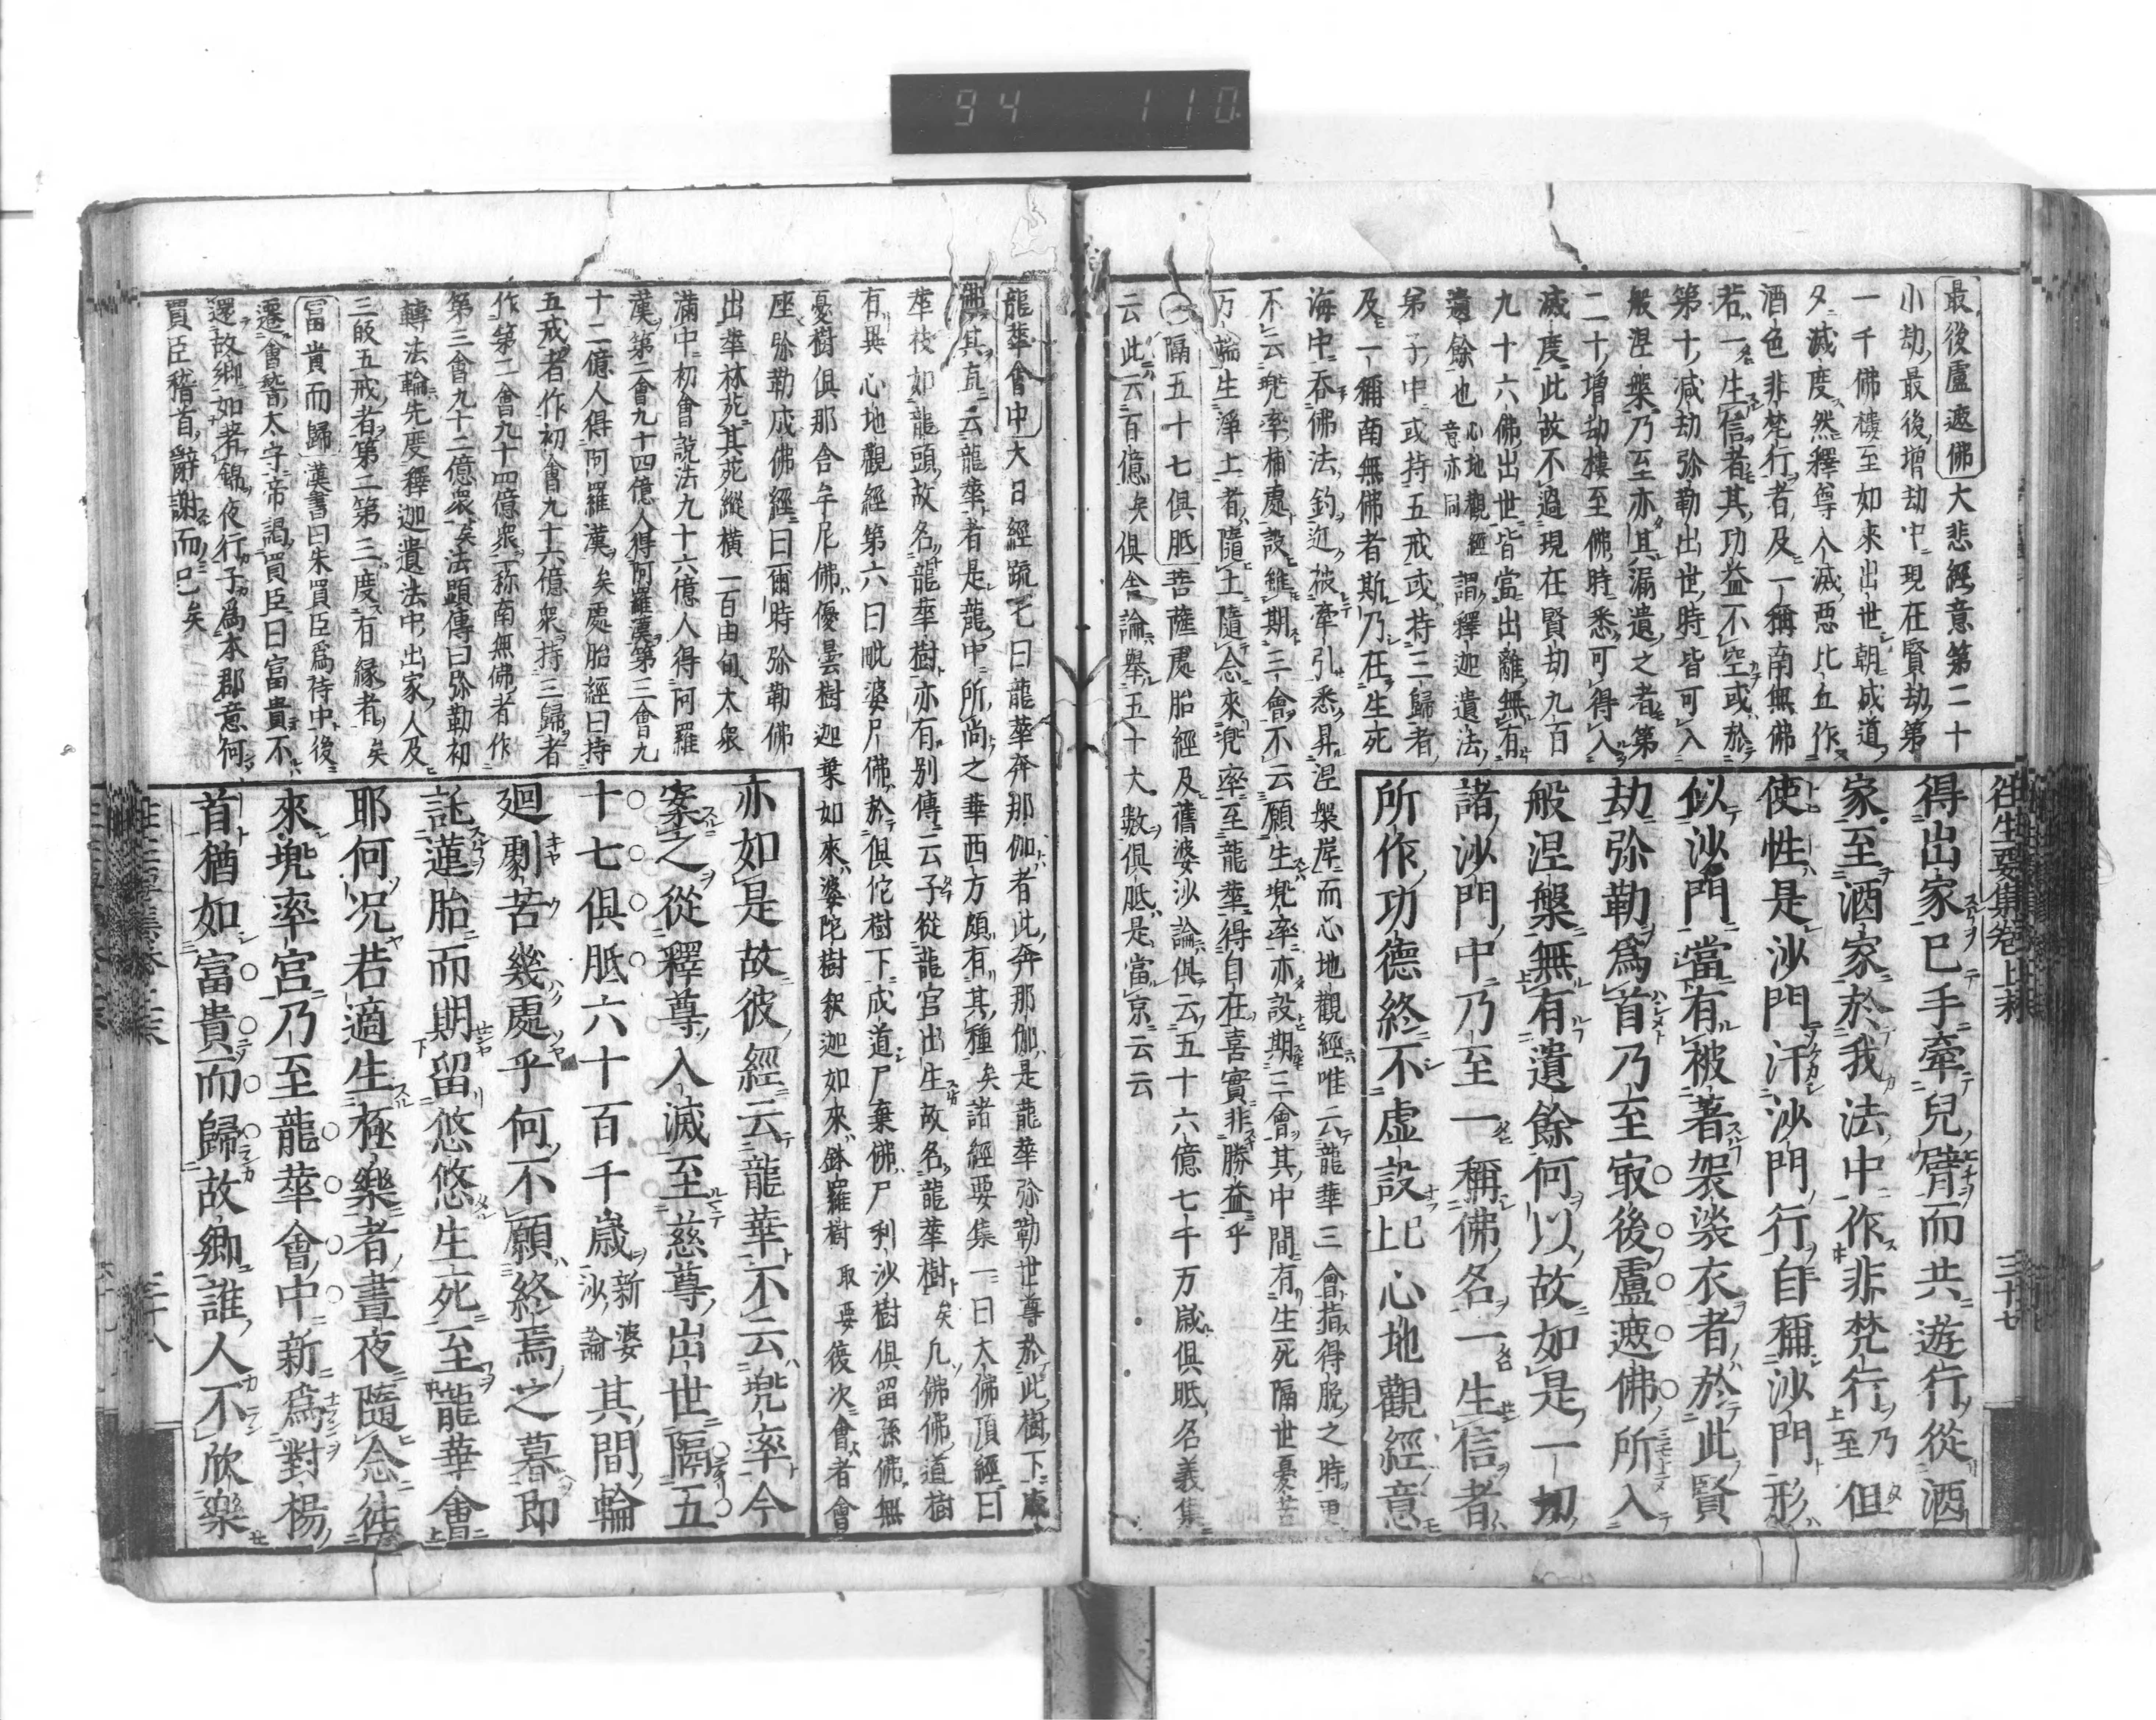 94 110
往生要集卷上末 三十七
最後盧遮佛 大悲經意第二十
小劫最後增劫中現在賢劫第
一千佛樓至如來出世朝成道
夕滅度然釋尊入滅惡比丘作
酒色非梵行者及一稱南無佛
若一生信者其功益不空或於
第十減劫弥勒出世時皆可入
般涅槃乃至亦其漏遺之者第
二十增劫樓至佛時悉可得入
滅度此故不過現在賢劫九百
九十六佛出世皆當出離無有
遺餘也 心地觀經意亦同 謂釋迦遺法
弟子中或持五戒或持三歸者
及一稱南無佛者斯乃在生死
海中吞佛法鈎近被牽引悉昇涅槃岸而心地觀經唯云龍華三會指得脫之時更
不云兜率補處設雖期三會不云願生兜率亦設期三會其中間有生死隔世憂苦
万端生淨土者隨土隨念來兜率至龍華得自在喜實非勝益乎
隔五十七俱胝 菩薩處胎經及舊婆沙論俱云五十六億七千万歲俱胝名義集
云此云百億矣俱舍論舉五十大數俱胝是當京云云
得出家已手牽兒臂而共遊行從酒
家至酒家於我法中作非梵行乃至但
使性是沙門汗沙門行自稱沙門形
似沙門當有被著袈裟衣者於此賢
劫弥勒爲首乃至冣後盧遮佛所入
般涅槃無有遺餘何以故如是一切
諸沙門中乃至一稱佛名一生信者
所作功德終不虛設 已上 心地觀經意
龍華會中 大日經疏七曰龍華奔那伽者此奔那伽是龍華弥勒世尊於此樹下成
佛其直云龍華者是龍中所尚之華西方頗有其種矣諸經要集一曰大佛頂經曰
華枝如龍頭故名龍華樹亦有別傳云子從龍宮出生故名龍華樹矣凡佛佛道樹
有異心地觀經第六曰毗婆尸佛於俱佗樹下成道尸棄佛尸利沙樹俱留孫佛無
憂樹俱那含牟尼佛優曇樹迦葉如來婆陀樹釈迦如來鉢羅樹 取要後次會者會
座弥勒成佛經曰爾時弥勒佛
出華林苑其苑縱橫一百由旬太衆
滿中初會說法九十六億人得阿羅
漢第二會九十四億人得阿羅漢第三會九
十二億人得阿羅漢矣處胎經曰持
五戒者作初會九十六億衆持三歸者
作第二會九十四億衆一称南無佛者作
第三會九十二億衆矣法顯傳曰弥勒初
轉法輪先度釋迦遺法中出家人及
三皈五戒者第二第三度有縁者矣
冨貴而歸 漢書曰朱買臣爲待中後
遷會暬太守帝謁買臣曰富貴不
還故郷如著錦夜行子爲本郡意何
買臣稽首辭謝而已矣
亦如是故彼經云龍華不云兜率今
案之從釋尊入滅至慈尊出世隔五
十七俱胝六十百千歲 新婆沙論 其間輪
廻劇苦幾處乎何不願終焉之暮即
託蓮胎而期留悠悠生死至龍華會
耶何况若適生極樂者晝夜隨念往
來兜率宮乃至龍華會中新爲對楊
首猶如富貴而歸故郷誰人不欣樂
三十八